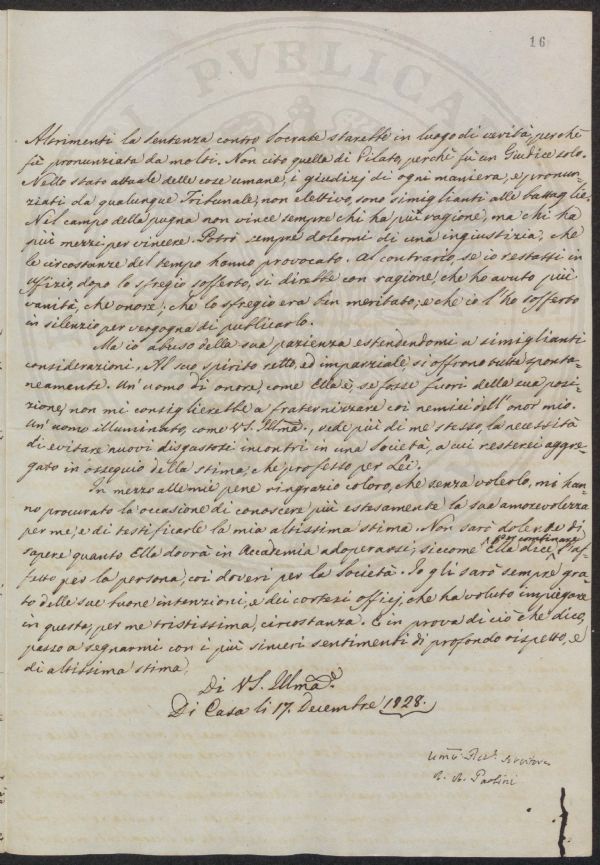 16
Altrimenti la sentenza contro Socrate starebbe in luogo di verità, perchè
fù pronunziata da molti. Non cito quella di Pilato, perchè fù un Giudice solo.
Nello stato attuale delle cose umane, i giudizj di ogni maniera, e pronun-
ziati da qualunque Tribunale, non elettivo, sono simiglianti alle battaglie.
Nel campo della pugna non vince sempre chi ha più ragione, ma chi ha
più mezzi per vincere. Potrò sempre dolermi di una ingiustizia, che
le circostanze del tempo hanno provocato. Al contrario, se io restassi in
Offizio, dopo lo sfregio sofferto, si direbbe con ragione, che ho avuto più
vanità, che onore; che lo sfregio era ben meritato; e che io l'ho sofferto
in silenzio per vergogna di publicarlo.
Ma io abuso della sua pazienza estendendomi a simiglianti
considerazioni. Al suo spirito retto, ed imparziale si offrono tutte sponta-
neamente. Un uomo di onore, come Ella è, se fosse fuori della sua posi-
zione, non mi consiglierebbe a fraternizzare coi nemici dell'onor mio.
Un uomo illuminato, come VS. Illma, vede più di me stesso, la necessità
di evitare nuovi disgustosi incontri in una Società, a cui resterei aggre-
gato in ossequio della stima, che professo per Lei.
In mezzo alle mie pene ringrazio coloro, che senza volerlo, mi han-
no procurato la occasione di conoscere più estesamente la sua amorevolezza
per me, e di testificarle la mia altissima stima. Non sarò dolente di
sapere quanto Ella dovrà in Accademia adoperarsi, siccome Ella dice, per combinare l'af-
fetto per la persona, coi doveri per la Società. Io gli sarò sempre gra-
to delle sue buone intenzioni, e dei cortesi officj, che ha voluto impiegare
in questa, per me tristissima, circostanza. E in prova di ciò che dico,
passo a segnarmi con i più sinceri sentimenti di profondo rispetto, e
di altissima stima.
Di VS. Illma
Di Casa li 17. Decembre 1828.
Umo Servitore
Paolini
PVBLICA